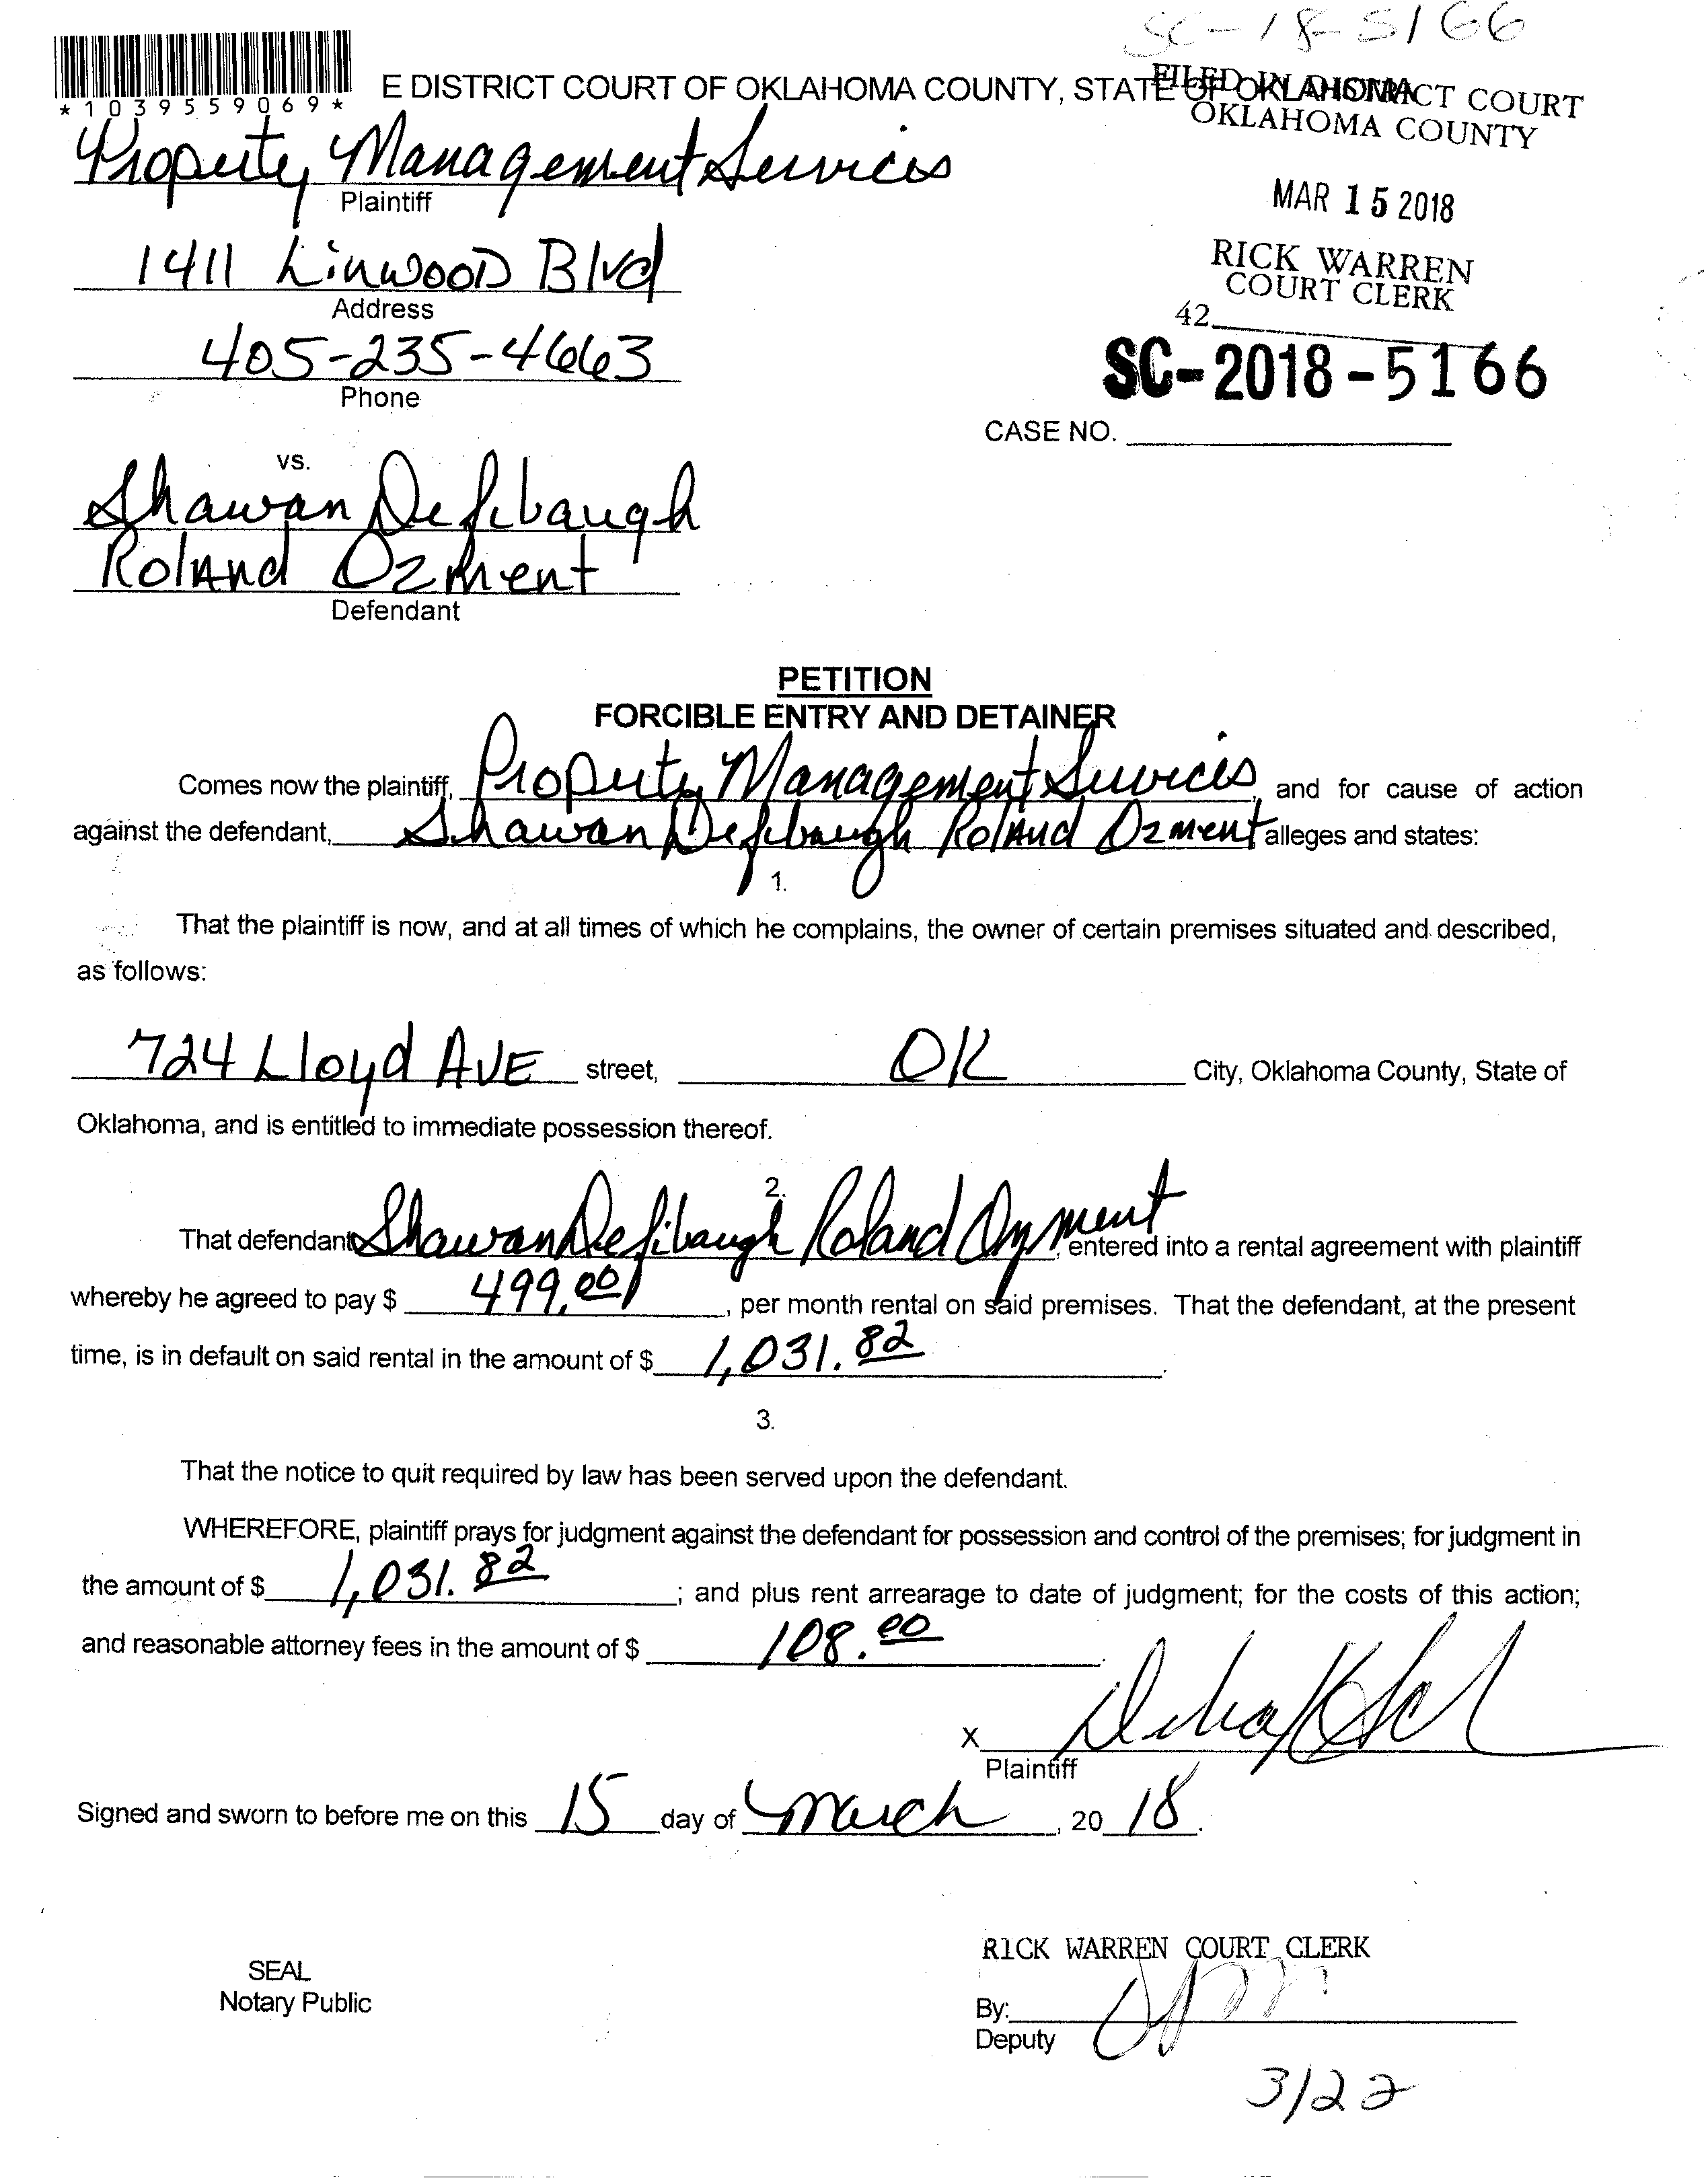 SC-18-5166
*1039559069*
E DISTRICT COURT OF OKLAHOMA COUNTY, STATE OF OKLAHOMA
FILED IN DISTRICT COURT
OKLAHOMA COUNTY
Property Management Services
Plaintiff
MAR 15 2018
1411 Linwood Blvd
Address
RICK WARREN
COURT CLERK
42
405-235-4663
Phone
SC-2018-5166
CASE NO.
vs.
Shawan Defibaugh
Roland Ozment
Defendant
PETITION
FORCIBLE ENTRY AND DETAINER
Comes now the plaintiff, Property Management Services, and for cause of action
against the defendant, Shawan Defibaugh Roland Ozment alleges and states:
1.
That the plaintiff is now, and at all times of which he complains, the owner of certain premises situated and described,
as follows:
724 Lloyd AVE street, OK City, Oklahoma County, State of
Oklahoma, and is entitled to immediate possession thereof.
2.
That defendant Shawan Defibaugh Roland Ozment, entered into a rental agreement with plaintiff
whereby he agreed to pay $ 499.00, per month rental on said premises. That the defendant, at the present
time, is in default on said rental in the amount of $ 1,031.82.
3.
That the notice to quit required by law has been served upon the defendant.
WHEREFORE, plaintiff prays for judgment against the defendant for possession and control of the premises; for judgment in
the amount of $ 1,031.82; and plus rent arrearage to date of judgment; for the costs of this action;
and reasonable attorney fees in the amount of $ 108.00.
X
Plaintiff
Signed and sworn to before me on this 15 day of March, 20 18.
RICK WARREN COURT CLERK
SEAL
Notary Public
By:
Deputy
3/22